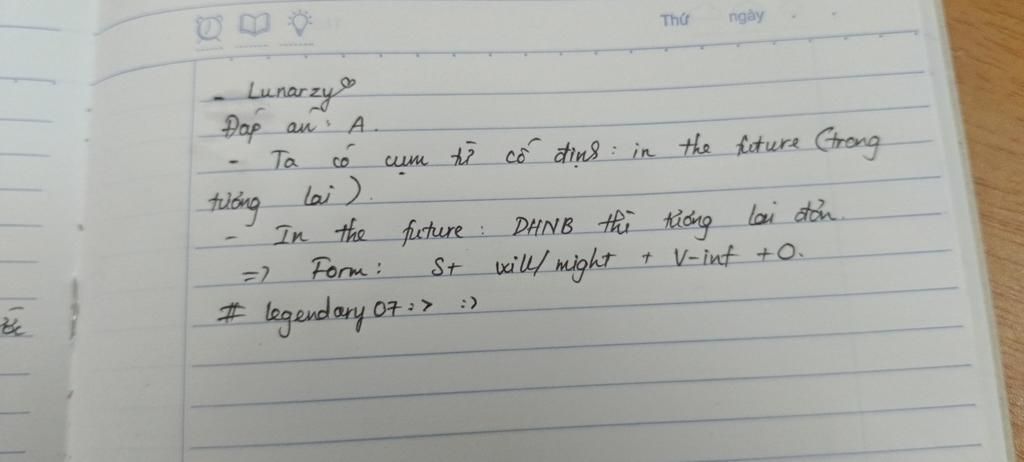 Thứ ngày
- Lunarzy
Đáp án: A.
- Ta có cụm từ cố định: in the future (trong
tương lai).
- In the future: DHNB thì tương lai đơn.
=> Form: S+ will/might + V-inf + O.
# legendary07 :> :)